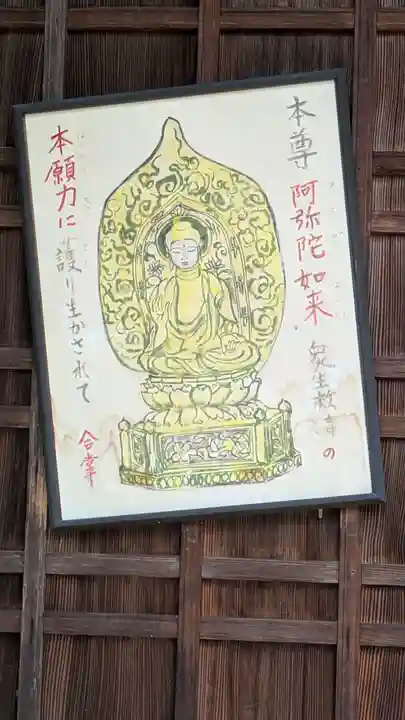 本尊 阿弥陀如来
衆生救済の
本願力に護り生かされて
合掌